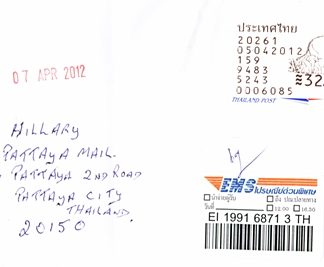 ประเทศไทย
20261
05042012
159
9483
5243
0006085
THAILAND POST
07 APR 2012
HILLARY
PATTAYA MAIL.
PATTAYA 2ND ROAD
PATTAYA CITY
THAILAND.
20150
EMS ไปรษณีย์ด่วนพิเศษ
EI 1991 6871 3 TH